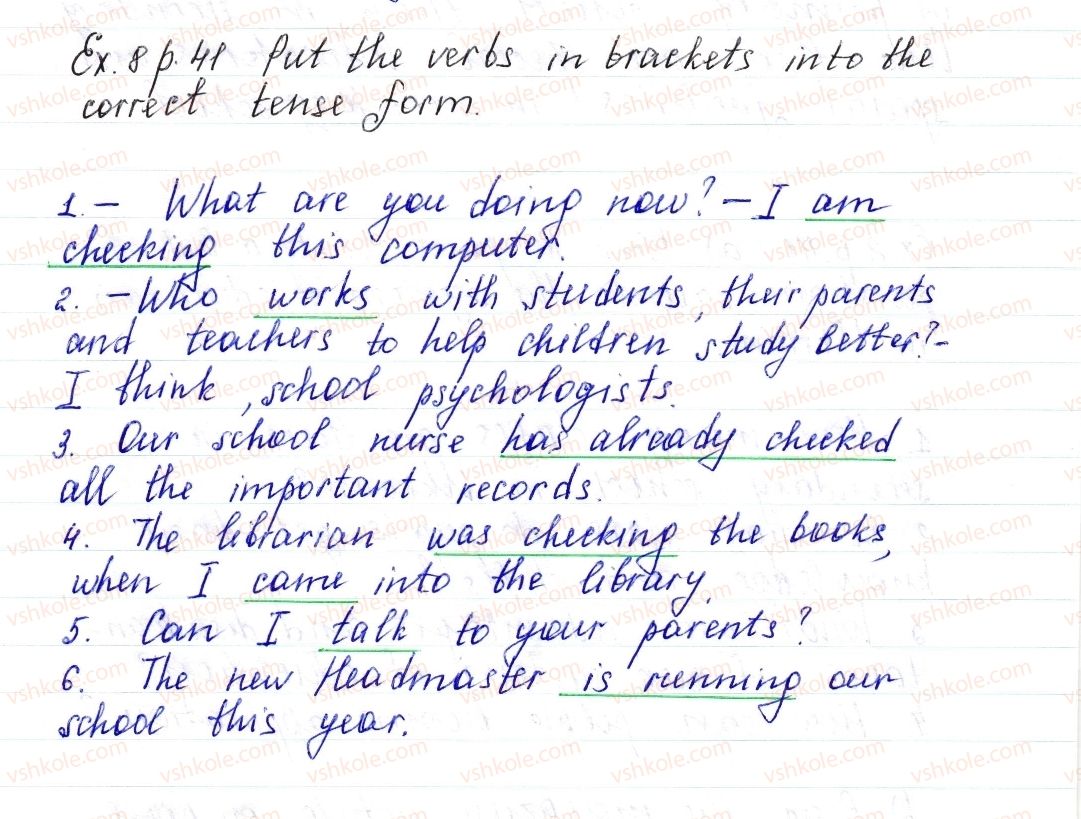 Ex. 8 p. 41 Put the verbs in brackets into the
correct tense form.
1. – What are you doing now? – I am
checking this computer.
2. – Who works with students, their parents
and teachers to help children study better? -
I think, school psychologists.
3. Our school nurse has already checked
all the important records.
4. The librarian was checking the books,
when I came into the library.
5. Can I talk to your parents?
6. The new Headmaster is running our
school this year.